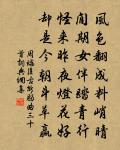 風色翻成料峭晴
閒期女伴踏青行
怪來昨夜燈花好
却是今朝斗草贏
周端臣古斷腸曲三十
首詞典網集